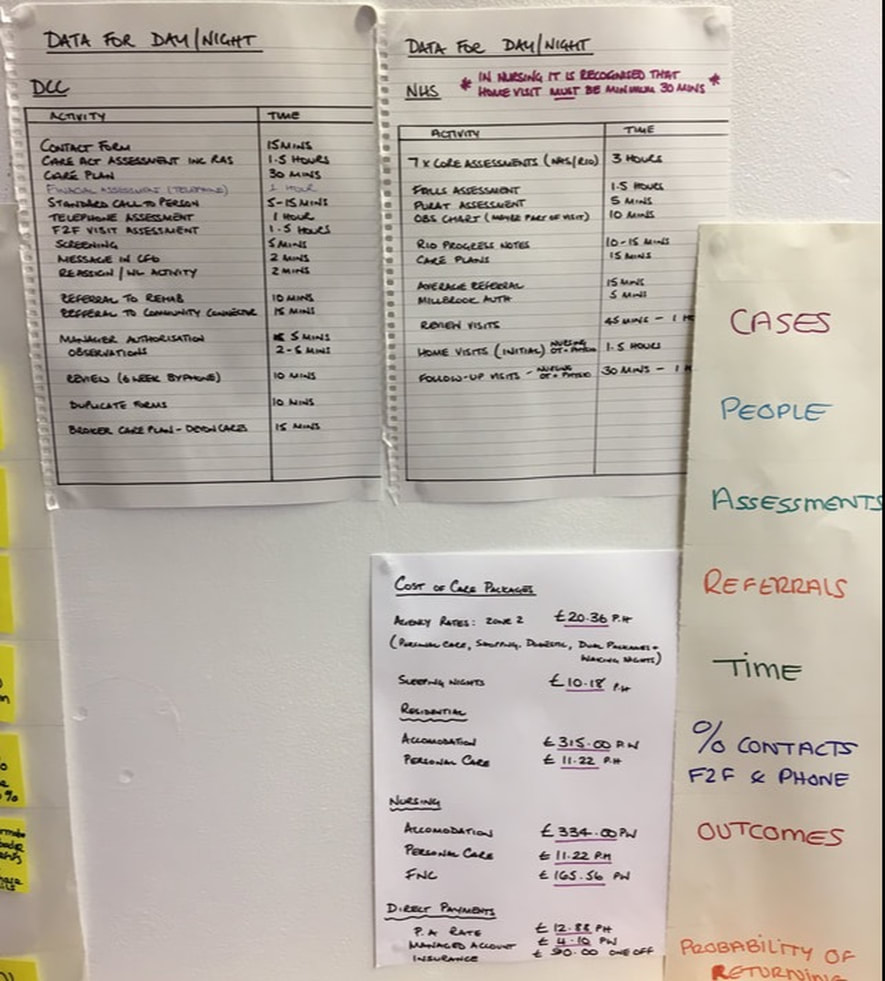 DATA FOR DAY/NIGHT
DCC
ACTIVITY TIME
CONTACT FORM 15 MINS
CARE ACT ASSESSMENT INC RAS 1.5 HOURS
CARE PLAN 30 MINS
FINACIAL ASSESSMENT (TELEPHONE) 1 HOUR
STANDARD CALL TO PERSON 5-15 MINS
TELEPHONE ASSESSMENT 1 HOUR
F2F VISIT ASSESSMENT 1.5 HOURS
SCREENING 5 MINS
MESSAGE IN 2 MINS
REASSIGN / WL ACTIVITY 2 MINS
REFERRAL TO REHAB 10 MINS
REFERRAL TO COMMUNITY CONNECTOR 15 MINS
MANAGER AUTHORISATION 5 MINS
OBSERVATIONS 2-5 MINS
REVIEW (6 WEEK BY PHONE) 10 MINS
DUPLICATE FORMS 10 MINS
BROKER CARE PLAN - DEVON CARES 15 MINS
DATA FOR DAY/NIGHT
NHS
* IN NURSING IT IS RECOGNISED THAT
HOME VISIT MUST BE MINIMUM 30 MINS *
ACTIVITY TIME
7 X CORE ASSESSMENTS (NHS/RIO) 3 HOURS
FALLS ASSESSMENT 1.5 HOURS
PURAT ASSESSMENT 5 MINS
OBS CHART (MAYBE PART OF VISIT) 10 MINS
RIO PROGRESS NOTES 10-15 MINS
CARE PLANS 15 MINS
AVERAGE REFERRAL 15 MINS
MILLBROOK AUTH 5 MINS
REVIEW VISITS 45 MINS - 1 H
HOME VISITS (INITIAL) NURSING OT + PHYSIO 1.5 HOURS
FOLLOW-UP VISITS - NURSING OT + PHYSIO 30 MINS - 1 H
COST OF CARE PACKAGES
AGENCY RATES: ZONE 2 £20.36 P.H
(PERSONAL CARE, SHOPPING, DOMESTIC, DUAL PACKAGES +
WAKING NIGHTS)
SLEEPING NIGHTS £10.18 P.H
RESIDENTIAL
ACCOMODATION £315.00 P.W
PERSONAL CARE £11.22 P.H
NURSING
ACCOMODATION £334.00 PW
PERSONAL CARE £11.22 P.H
FNC £165.56 PW
DIRECT PAYMENTS
P.A RATE £12.88 PH
MANAGED ACCOUNT £4.10 PW
INSURANCE £90.00 ONE OFF
CASES
PEOPLE
ASSESSMENTS
REFERRALS
TIME
% CONTACTS
F2F & PHONE
OUTCOMES
PROBABILITY OF
RETURNING